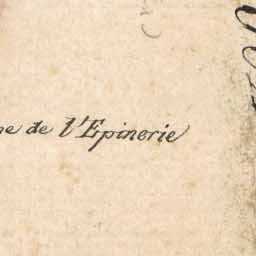 de l'Epinerie